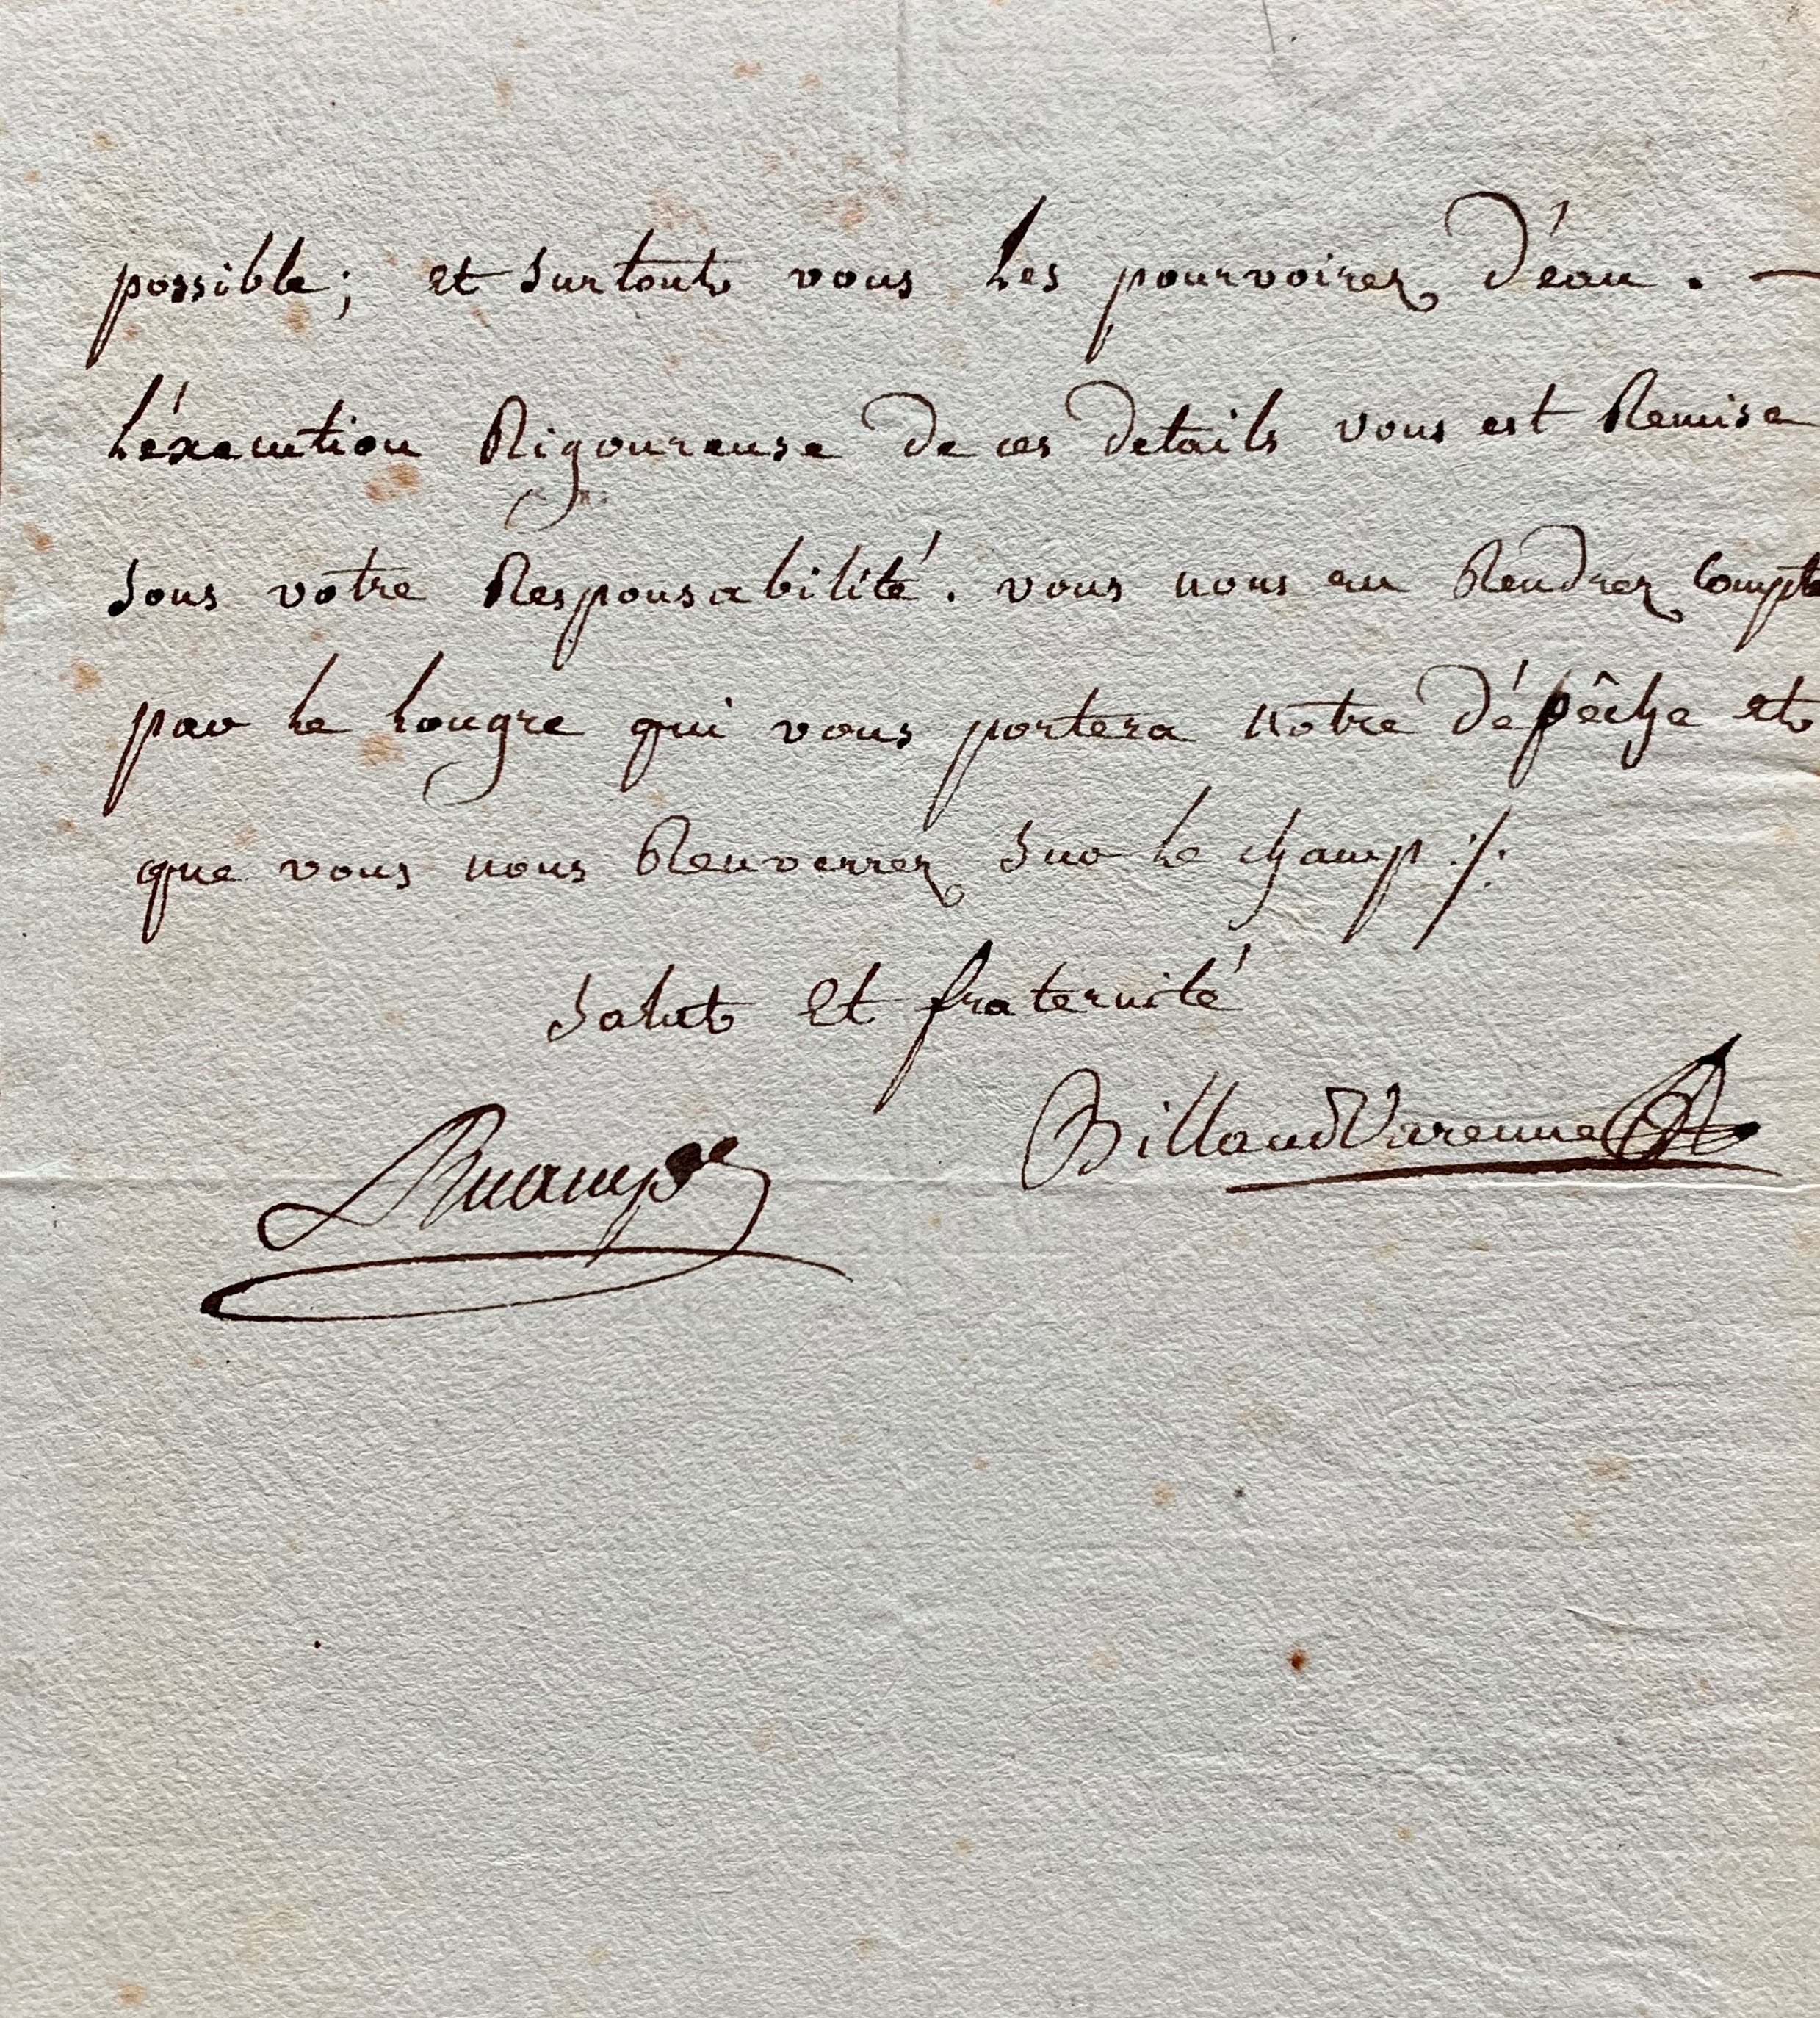 possible; et surtout vous les pourvoirez d'éau. —
L'éxecution Rigoureuse de ces details vous est Remise
sous votre Responsabilité. vous nous en Rendrez Compte
par le lougre qui vous portera notre dépêche et
que vous nous Renverrez sur le champ ./.
Salut Et fraternité
Billaud Varenne
Ruamps